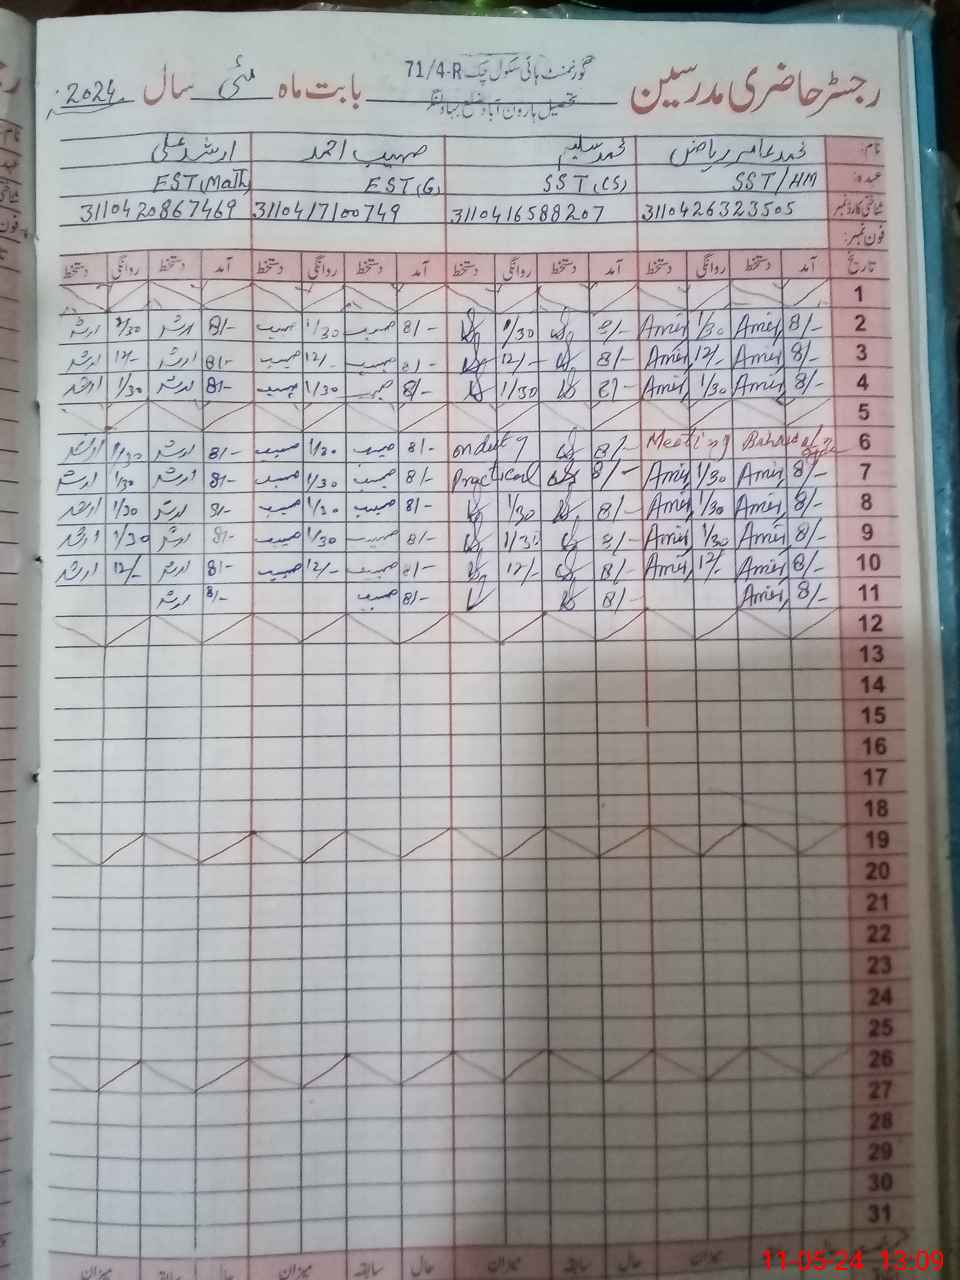 رجسٹر حاضری مدرسین گورنمنٹ ہائی سکول چک 71/4-R بابت ماہ مئی سال 2024
تحصیل ہارون آباد ضلع بہاولنگر
نام: محمد عامر ریاض محمد سلیم صہیب احمد ارشد علی
عہدہ: SST/HM SST(CS) EST(G) EST(Math)
شناختی کارڈ نمبر 3110426323505 3110416588207 3110417100749 3110420867469
فون نمبر:
تاریخ آمد دستخط روانگی دستخط آمد دستخط روانگی دستخط آمد دستخط روانگی دستخط آمد دستخط روانگی دستخط
1
2 8/- Amir 1/30 Amir 8/- 1/30 8/- صہیب 1/30 صہیب 8/- ارشد 1/30 ارشد
3 8/- Amir 12/- Amir 8/- 12/- 8/- صہیب 12/- صہیب 8/- ارشد 12/- ارشد
4 8/- Amir 1/30 Amir 8/- 1/30 8/- صہیب 1/30 صہیب 8/- ارشد 1/30 ارشد
5
6 Meeting 8/- onduty 8/- صہیب 1/30 صہیب 8/- ارشد 1/30 ارشد
7 8/- Amir 1/30 Amir 8/- Practical 8/- صہیب 1/30 صہیب 8/- ارشد 1/30 ارشد
8 8/- Amir 1/30 Amir 8/- 1/30 8/- صہیب 1/30 صہیب 8/- ارشد 1/30 ارشد
9 8/- Amir 1/30 Amir 8/- 1/30 8/- صہیب 1/30 صہیب 8/- ارشد 1/30 ارشد
10 8/- Amir 12/- Amir 8/- 12/- 8/- صہیب 12/- صہیب 8/- ارشد 12/- ارشد
11 8/- Amir 8/- 8/- صہیب 8/- ارشد
12
13
14
15
16
17
18
19
20
21
22
23
24
25
26
27
28
29
30
31
حال میزان سابقہ حال میزان سابقہ حال میزان
11-05-24 13:09